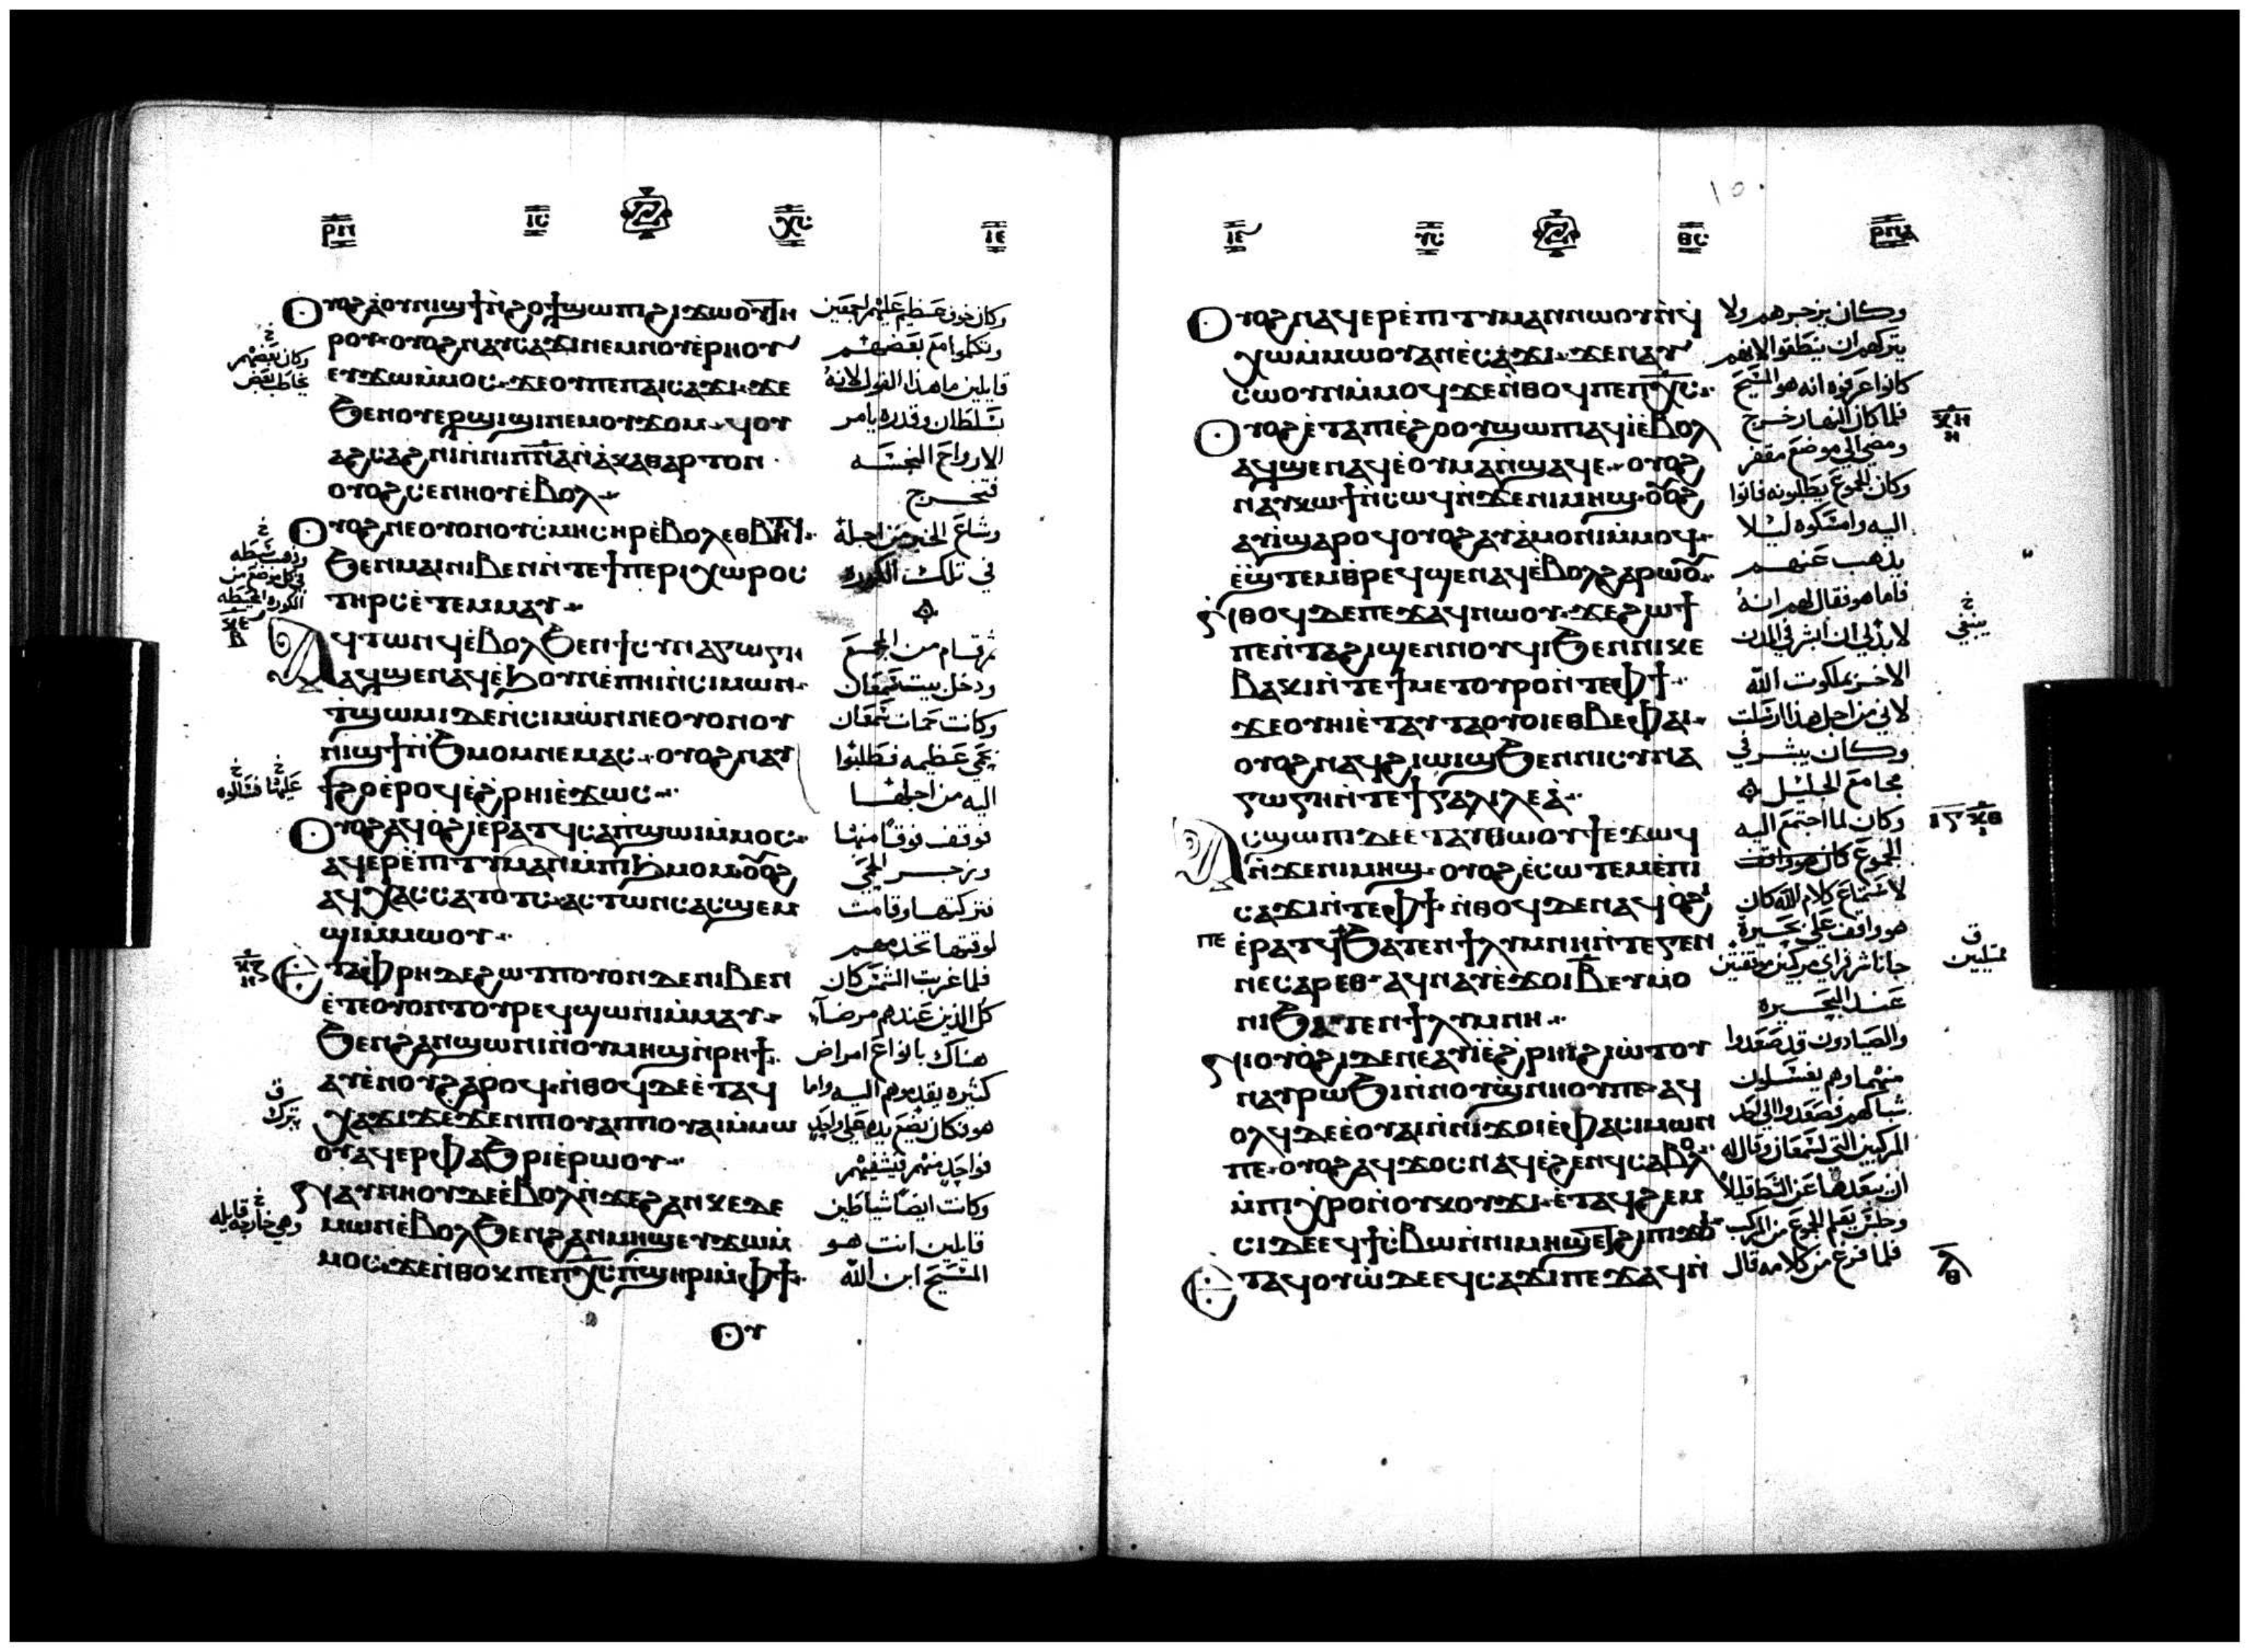 ⲣⲡ ⲓⲥ ⲭⲥ ⲓⲉ
Ⲟⲩⲟϩ ⲁⲟⲩⲛⲓϣϯ ⲛϩⲟϯ ϣⲱⲡⲓ ϩⲓϫⲱⲟⲩ ⲧⲏ
ⲣⲟⲩ ⲟⲩⲟϩ ⲛⲁⲩⲥⲁϫⲓ ⲛⲉⲙ ⲛⲟⲩⲉⲣⲏⲟⲩ
ⲉⲩϫⲱⲙⲙⲟⲥ ϫⲉ ⲟⲩ ⲡⲉ ⲡⲁⲓⲥⲁϫⲓ ϫⲉ
ϧⲉⲛ ⲟⲩⲉⲣϣⲓϣⲓ ⲛⲉⲙ ⲟⲩϫⲟⲙ ϥⲟⲩ
ⲁϩⲥⲁϩⲛⲓ ⲛⲛⲓⲡⲛⲁ ⲛⲁⲕⲁⲑⲁⲣⲧⲟⲛ
ⲟⲩⲟϩ ⲥⲉⲛⲏⲟⲩ ⲉⲃⲟⲗ
Ⲟⲩⲟϩ ⲛⲉ ⲟⲩⲟⲛ ⲟⲩⲥⲙⲏ ⲥⲏⲣ ⲉⲃⲟⲗ ⲉⲑⲃⲏⲧϥ
ϧⲉⲛ ⲙⲁⲓ ⲛⲓⲃⲉⲛ ⲛⲧⲉ ϯⲡⲉⲣⲓⲭⲱⲣⲟⲥ
ⲧⲏⲣⲥ ⲉⲧⲉⲙⲙⲁⲩ
Ⲁϥⲧⲱⲛϥ ⲉⲃⲟⲗ ϧⲉⲛ ϯⲥⲩⲛⲁⲅⲱⲅⲏ
ⲁϥϣⲉⲛⲁϥ ⲉϧⲟⲩⲛ ⲉⲡⲏⲓ ⲛⲥⲓⲙⲱⲛ
ⲧϣⲱⲙⲓ ⲇⲉ ⲛⲥⲓⲙⲱⲛ ⲛⲉ ⲟⲩⲟⲛ ⲟⲩ
ⲛⲓϣϯ ⲛϧⲙⲟⲙ ⲛⲉⲙⲁⲥ ⲟⲩⲟϩ ⲛⲁⲩ
ϯϩⲟ ⲉⲣⲟϥ ⲉϩⲣⲏⲓ ⲉϫⲱⲥ
Ⲟⲩⲟϩ ⲁϥⲟϩⲓ ⲉⲣⲁⲧϥ ⲥⲁⲡϣⲱⲓ ⲙⲙⲟⲥ
ⲁϥⲉⲣⲉⲡⲓⲧⲩⲙⲁⲛ ⲙⲡⲓϧⲙⲟⲙ ⲟⲩⲟϩ
ⲁϥⲭⲁⲥ ⲥⲁⲧⲟⲧⲥ ⲁⲥⲧⲱⲛⲥ ⲁⲥϣⲉⲙ
ϣⲓ ⲙⲙⲱⲟⲩ
Ⲉⲧⲁ ⲫⲣⲏ ⲇⲉ ϩⲱⲧⲡ ⲟⲩⲟⲛ ⲇⲉ ⲛⲓⲃⲉⲛ
ⲉⲧⲉ ⲟⲩⲟⲛⲧⲟⲩ ⲣⲉϥϣⲱⲛⲓ ⲙⲙⲁⲩ
ϧⲉⲛ ϩⲁⲛϣⲱⲛⲓ ⲛⲟⲩⲙⲏϣ ⲛⲣⲏϯ
ⲁⲩⲉⲛⲟⲩ ϩⲁⲣⲟϥ ⲛⲑⲟϥ ⲇⲉ ⲉⲧⲁϥ
ⲭⲁϫⲓϫ ⲉϫⲉⲛ ⲡⲓⲟⲩⲁⲓ ⲡⲓⲟⲩⲁⲓ ⲙⲙⲱ
ⲟⲩ ⲁϥⲉⲣⲫⲁϧⲣⲓ ⲉⲣⲱⲟⲩ
Ⲛⲁⲩⲛⲏⲟⲩ ⲇⲉ ⲉⲃⲟⲗ ⲛϫⲉ ϩⲁⲛⲕⲉⲇⲉ
ⲙⲱⲛ ⲉⲃⲟⲗ ϧⲉⲛ ϩⲁⲛⲙⲏϣ ⲉⲩϫⲱⲙ
ⲙⲟⲥ ϫⲉ ⲛⲑⲟⲕ ⲡⲉ ⲡⲭⲥ ⲡϣⲏⲣⲓ ⲙⲫϯ
Ⲟⲩ
وكان خوف عظيم عليهم اجمعين
وتكلموا مع بعضهم
قايلين ما هذا القول لانه
بسلطان وقدره يامر
الارواح النجسه
فتخرج
وشاع الخبر من اجله
في تلك الكوره
ثم قام من المجمع
ودخل بيت سمعان
وكانت حمات سمعان
بحمي عظيمه فطلبوا
اليه من اجلها
فوقف فوقا منها
وزجر الحمي
فتركتها وقامت
لوقتها تخدمهم
فلما غربت الشمس كان
كل الذين عندهم مرضا
هناك بانواع امراض
كثيره يقدموهم اليه واما
هو فكان يضع يده علي واحد
فواحد منهم فيشفيهم
وكانت ايضا شياطين
قايلين انت هو
المسيح ابن الله
وكان بعضهم
يخاطب بعض
ⲓⲉ ⲩⲥ ⲑⲥ ⲣⲡⲁ
Ⲟⲩⲟϩ ⲛⲁϥⲉⲣⲉⲡⲓⲧⲩⲙⲁⲛ ⲛⲱⲟⲩ ⲛϥ
ⲭⲱ ⲙⲙⲱⲟⲩ ⲁⲛ ⲉⲥⲁϫⲓ ϫⲉ ⲛⲁⲩ
ⲥⲱⲟⲩⲛ ⲙⲙⲟϥ ϫⲉ ⲛⲑⲟϥ ⲡⲉ ⲡⲭⲥ
Ⲟⲩⲟϩ ⲉⲧⲁ ⲡⲓⲉϩⲟⲟⲩ ϣⲱⲡⲓ ⲁϥⲓ ⲉⲃⲟⲗ
ⲁϥϣⲉⲛⲁϥ ⲉⲟⲩⲙⲁ ⲛϣⲁϥⲉ ⲟⲩⲟϩ
ⲛⲁⲩⲕⲱϯ ⲛⲥⲱϥ ⲛϫⲉ ⲛⲓⲙⲏϣ ⲟⲩⲟϩ
ⲁⲩⲓ ϣⲁⲣⲟϥ ⲟⲩⲟϩ ⲁⲩⲁⲙⲟⲛⲓ ⲙⲙⲟϥ
ⲉϣⲧⲉⲙⲑⲣⲉϥϣⲉⲛⲁϥ ⲉⲃⲟⲗ ϩⲁⲣⲱⲟⲩ
Ⲛⲑⲟϥ ⲇⲉ ⲡⲉϫⲁϥ ⲛⲱⲟⲩ ϫⲉ ϩⲱϯ
ⲡⲉ ⲛⲧⲁϩⲓϣⲉⲛⲛⲟⲩϥⲓ ϧⲉⲛ ⲛⲓⲕⲉ
ⲃⲁⲕⲓ ⲛⲧⲉ ϯⲙⲉⲧⲟⲩⲣⲟ ⲛⲧⲉ ⲫϯ
ϫⲉ ⲟⲩⲏⲓ ⲉⲧⲁⲩⲧⲁⲟⲩⲟⲓ ⲉⲑⲃⲉ ⲫⲁⲓ
ⲟⲩⲟϩ ⲛⲁϥϩⲓⲱⲓϣ ϧⲉⲛ ⲛⲓⲥⲩⲛⲁ
ⲅⲱⲅⲏ ⲛⲧⲉ ϯⲅⲁⲗⲓⲗⲉⲁ
Ⲁⲥϣⲱⲡⲓ ⲇⲉ ⲉⲧⲁⲩⲑⲱⲟⲩϯ ⲉϫⲱϥ
ⲛϫⲉ ⲛⲓⲙⲏϣ ⲟⲩⲟϩ ⲉⲥⲱⲧⲉⲙ ⲉⲡⲓ
ⲥⲁϫⲓ ⲛⲧⲉ ⲫϯ ⲛⲑⲟϥ ⲇⲉ ⲛⲁϥⲟϩⲓ
ⲡⲉ ⲉⲣⲁⲧϥ ϧⲁⲧⲉⲛ ϯⲗⲩⲙⲛⲏ ⲛⲧⲉ ⲅⲉⲛ
ⲛⲉⲥⲁⲣⲉⲑ ⲁϥⲛⲁⲩ ⲉϫⲟⲓ ⲃ ⲉⲩⲙⲟ
ⲛⲓ ϧⲁⲧⲉⲛ ϯⲗⲩⲙⲛⲏ
Ⲛⲓⲟⲩⲟϩⲓ ⲇⲉ ⲛⲉⲁⲩⲓ ⲉϩⲣⲏⲓ ϩⲓⲱⲧⲟⲩ
ⲛⲁⲩⲣⲱϧⲓ ⲛⲛⲟⲩϣⲛⲏⲟⲩ ⲡⲉ ⲁϥ
ⲟⲗϥ ⲇⲉ ⲉⲟⲩⲁⲓ ⲛⲛⲓϫⲟⲓ ⲉⲫⲁ ⲥⲓⲙⲱⲛ
ⲡⲉ ⲟⲩⲟϩ ⲁϥϫⲟⲥ ⲛⲁϥ ⲉϩⲉⲛϥ ⲥⲁⲃⲟⲗ
ⲙⲡⲓⲭⲣⲟ ⲛⲟⲩⲕⲟⲩϫⲓ ⲉⲧⲁϥϩⲉⲙ
ⲥⲓ ⲇⲉ ⲉϥϯⲥⲃⲱ ⲛⲛⲓⲙⲏϣ ϩⲓ ⲡⲓϫⲟⲓ
Ⲉⲧⲁϥⲟⲩⲱ ⲇⲉ ⲉϥⲥⲁϫⲓ ⲡⲉϫⲁϥ ⲛ
وكان يزجرهم ولا
يتركهم ان ينطقوا لانهم
كانوا عرفوه انه هو المسيح
فلما كان النهار خرج
ومضي الي موضع مقفر
وكان الجموع يطلبونه فاتوا
اليه وامسكوه ليلا
يذهب عنهم
فاما هو فقال لهم انه
لا بد لي ان ابشر في المدن
الاخر بملكوت الله
لاني من اجل هذا ارسلت
وكان يبشر في
مجامع الجليل
وكان لما اجتمع اليه
الجموع كان هو واقف
لاستماع كلام الله كان
هو واقف علي بحيرة
جاناشر فراي مركبين موثقتين
عند البحيره
والصيادون قد صعدوا
منهما وهم يغسلون
شباكهم فصعد والي احد
المركبين التي لسمعان وقال له
ان يبعدها عن الشط قليلا
وجلس يعلم الجموع من المركب
فلما فرغ من كلامه قال
ينبغي